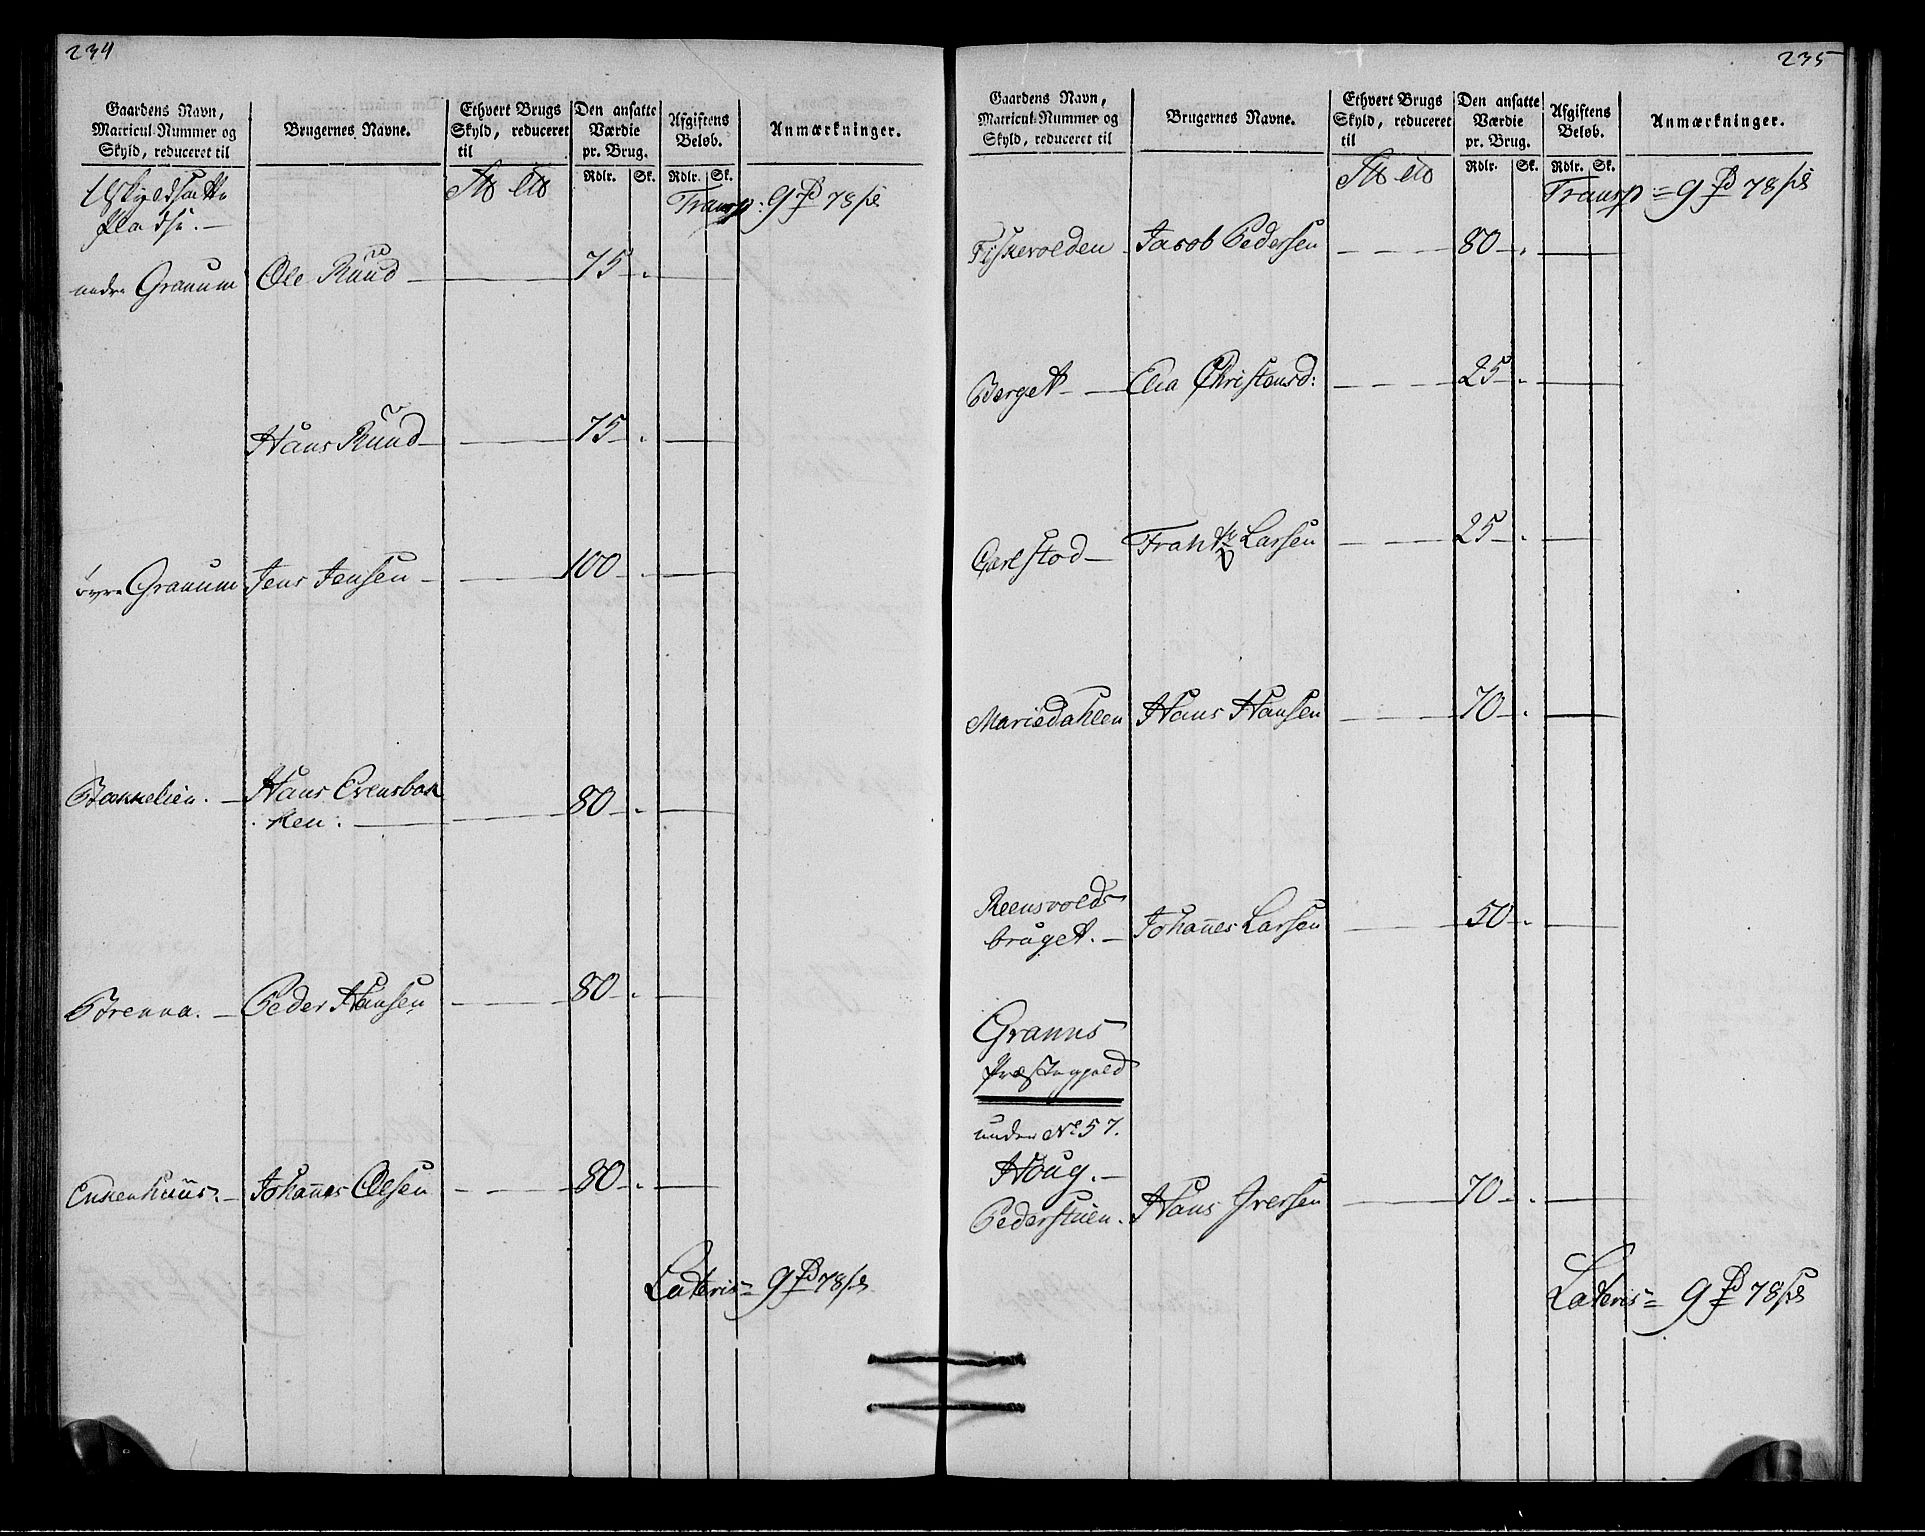 234
Gaardens Navn,
Matricul-Nummer og
Skyld, reduceret til
Brugernes Navne.
Ethvert Brugs
Skyld, reduceret
til
Den ansatte
Værdie
pr. Brug.
Rdlr. Sk.
Afgiftens
Beløb.
Rdlr. Sk.
Anmærkninger.
Uskyldsatte
Pladse.
Transp: 9 78 s
nedre Granum Ole Ruud 75 .
Hans Ruud 75 .
øvre Granum Jens Jensen 100 .
Bækkelien. Hans Evensbak
ken. 80 .
Brenna. Peder Hansen 80 .
Enkenhuus. Johannes Olsen 80 .
Lateris = 9 78 s
235
Gaardens Navn,
Matricul-Nummer og
Skyld, reduceret til
Brugernes Navne.
Ethvert Brugs
Skyld, reduceret
til
Den ansatte
Værdie
pr. Brug.
Rdlr. Sk.
Afgiftens
Beløb.
Rdlr. Sk.
Anmærkninger.
Transp = 9 78 s
Fiskevolden Jacob Pedersen 80 .
Berget Elia Christensd: 25 .
Carlstad Larsen 25 .
Mariedahlen Hans Hansen 70 .
Reensvolds
bruget. Johannes Larsen 50 .
Granns
Præstegjeld
under No 57.
Houg.
Pederstuen. Hans Iversen 70 .
Lateris = 9 78 s